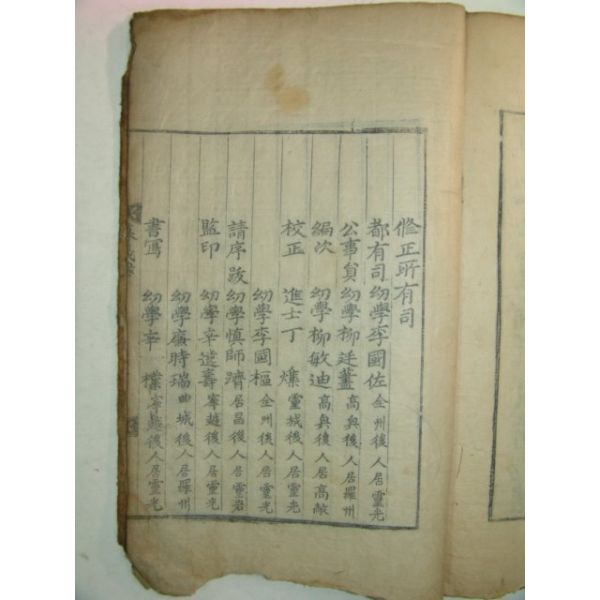 修正所有司
都有司 幼學李國佐 全州後人居靈光
公事員 幼學柳廷藎 高興後人居羅州
編次 幼學柳敏迪 高興後人居高敞
校正 進士丁㷜 靈城後人居靈光
幼學李國樞 全州後人居靈光
請序跋 幼學愼師躋 居昌後人居靈岩
監印 幼學辛遂壽 寧越後人居靈光
幼學廉時瑞 曲城後人居羅州
書寫 幼學辛檏 寧越後人居靈光